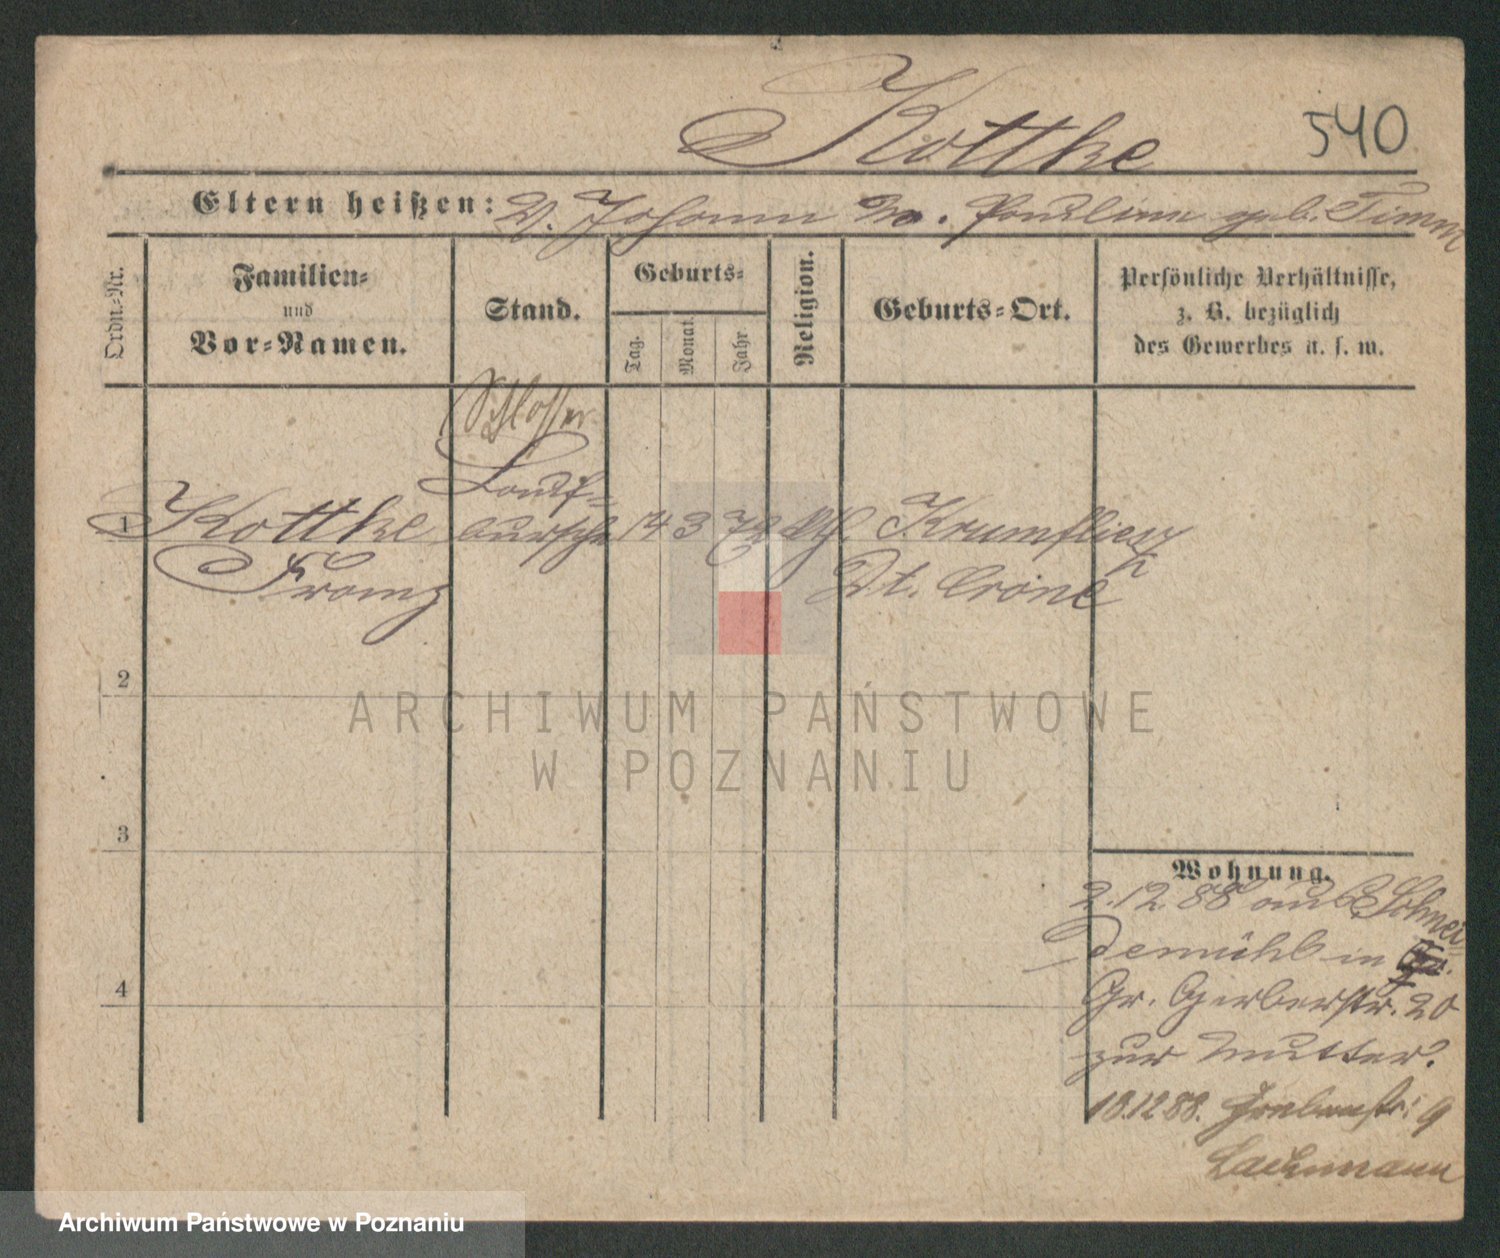 Kottke 540
Eltern heißen: V. Johann M. Pauline geb. Timm
Ordn.-Nr.
Familien-
und
Vor-Namen.
Stand.
Geburts-
Tag.
Monat.
Jahr
Religion.
Geburts-Ort.
Persönliche Verhältnisse,
z. B. bezüglich
des Gewerbes u. s. w.
Schlosser
Lauf-
1 Kottke bursche 14 3 72 kth. Krumfließ
Franz Dt. Crone
2
3
4
Wohnung.
2.12.88 aus Schnei-
demühl in
Gr. Gerberstr. 20
zur Mutter.
18.12.88. Grabenstr. 9
Lachmann
ARCHIWUM PAŃSTWOWE
W POZNANIU
Archiwum Państwowe w Poznaniu